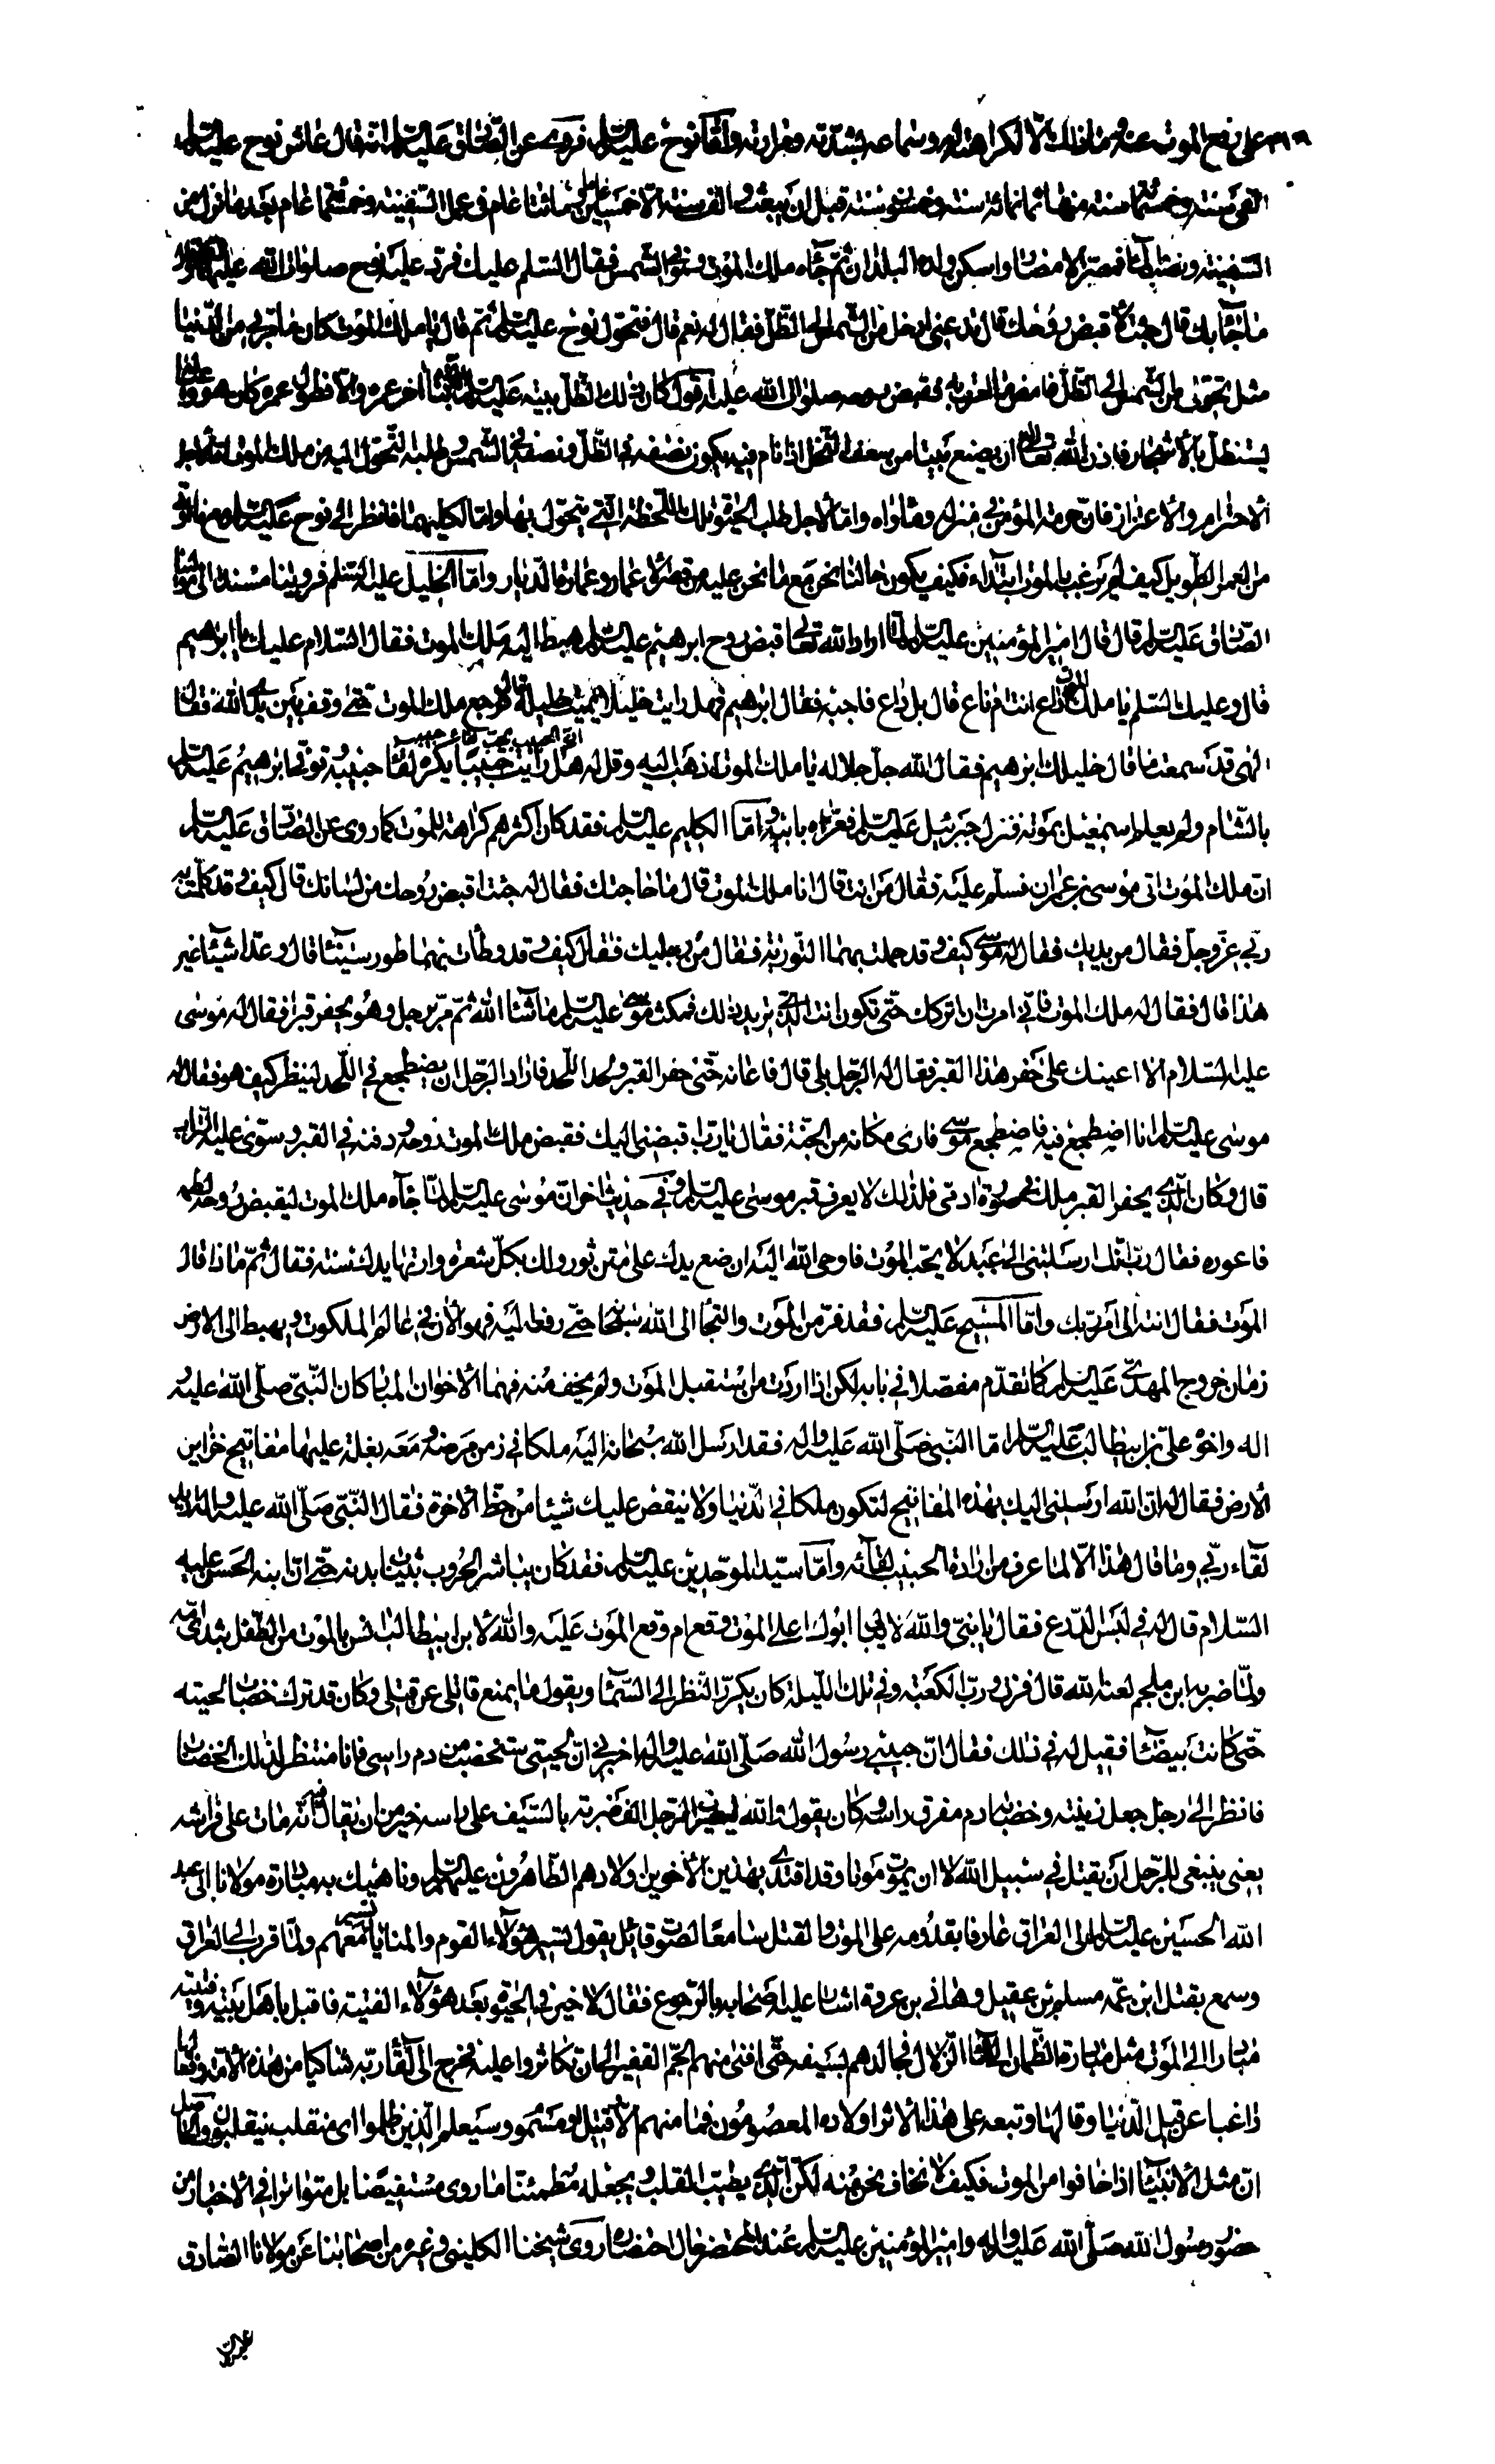 على رفع الموت عنهم وما ذلك الا لكراهتهم له وسماعهم بشدته ومرارته واما نوح عليه السلم فروى عن الصادق عليه السلم انه قال عاش نوح عليه السلم
الفي سنة وخمسمائة سنة منها ثمانمائة سنة وخمسون سنة قبل ان يبعث والف سنة الا خمسين عاما ومائتا عام في عمل السفينة وخمسمائة عام بعد ما نزل من
السفينة ونضب الماء فمصر الامصار واسكن ولده البلدان ثم جاءه ملك الموت وهو في الشمس فقال السلم عليك فرد عليه نوح صلوات الله عليهما
ما جاء بك قال جئت لاقبض روحك قال تدعني ادخل من الشمس الى الظل فقال له نعم قال فتحول نوح عليه السلم ثم قال يا ملك الموت كان ما مر بي من الدنيا
مثل تحولي من الشمس الى الظل فامض لما امرت به فقبض روحه صلوات الله عليه اقول كان ذلك الظل بيته عليه السلم اخر عمره والا فطول عمره كان هو
يستظل بالاشجار فاذن الله تعالى له ان يصنع بيتا من سعف النخل اذا نام فيه يكون نصفه في الظل ونصفه في الشمس وطلبه التحول اليه من ملك الموت اما لاجل
الاحترام والاعتزاز فان حرمة المؤمن في منزله وماواه واما لاجل طلب الحيوة تلك اللحظة التي يتحول بها واما لكليهما فانظر الى نوح عليه السلم
من العمر الطويل كيف لم يرغب بالموت ابتداء فكيف يكون حالنا نحن مع ما نحن عليه من قصر الاعمار وعمارة الديار واما الخليل عليه السلم فروينا مسندا الى مولانا
الصادق عليه السلم قال قال امير المؤمنين عليه السلم لما اراد الله تعالى قبض روح ابرهيم عليه السلم هبط اليه ملك الموت فقال السلام عليك يا ابرهيم
قال وعليك السلم يا ملك الموت اداع انت ام ناع قال بل داع فاجبه فقال ابرهيم فهل رايت خليلا يميت خليله قال فرجع ملك الموت حتى وقف بين يدي الله فقال
الهي قد سمعت ما قال خليلك ابرهيم فقال الله جل جلاله يا ملك الموت اذهب اليه وقل له هل رايت حبيبا يكره لقاء حبيبه ان الحبيب يحب لقاء حبيبه توفي ابرهيم عليه السلم
بالشام ولم يعلم اسمعيل بموته فنزل جبرئيل عليه السلم فعزاه بابيه واما الكليم عليه السلم فقد كان اكثرهم كراهة للموت كما روى عن الصادق عليه السلم
ان ملك الموت اتى موسى بن عمران فسلم عليه فقال من انت قال انا ملك الموت قال ما حاجتك فقال له جئت اقبض روحك من لسانك قال كيف وقد كلمت به
ربي عز وجل فقال من يديك فقال له موسى كيف وقد حملت بهما التورية فقال من رجليك فقال كيف وقد وطأت بهما طور سيناء قال وعد اشياء غير
هذا قال فقال له ملك الموت فاني امرت ان اتركك حتى تكون انت الذي تريد ذلك فمكث موسى عليه السلم ما شاء الله ثم مر برجل وهو يحفر قبرا فقال له موسى
عليه السلام الا اعينك على حفر هذا القبر فقال له الرجل بلى قال فاعانه حتى حفر القبر ولحد اللحد فاراد الرجل ان يضطجع في اللحد لينظر كيف هو فقال له
موسى عليه السلم انا اضطجع فيه فاضطجع موسى فارى مكانه من الجنة فقال يا رب اقبضني اليك فقبض ملك الموت روحه ودفنه في القبر وسوى عليه التراب
قال وكان الذي يحفر القبر ملك في صورة ادمي فلذلك لا يعرف قبر موسى عليه السلم وفي حديث اخر ان موسى عليه السلم لما جاءه ملك الموت ليقبض روحه لطمه
فاعوره فقال رب انك ارسلتني الى عبد لا يحب الموت فاوحى الله اليه ان ضع يدك على متن ثور ولك بكل شعرة وارتها يدك سنة فقال ثم ماذا قال
الموت فقال انته الى امر ربك واما المسيح عليه السلم فقد فر من الموت والتجأ الى الله سبحانه حتى رفعه اليه فهو الان في عالم الملكوت ويهبط الى الارض
زمان خروج المهدي عليه السلم كما تقدم مفصلا في بابه لكن اذا اردت من استقبل الموت ولم يخف منه فهما الاخوان المباركان النبي صلى الله عليه و
اله واخوه علي بن ابيطالب عليه السلم اما النبي صلى الله عليه واله فقد ارسل الله سبحانه اليه ملكا في زمن مرضه ومعه بغلة عليها مفاتيح خزاين
الارض فقال له ان الله ارسلني اليك بهذه المفاتيح لتكون ملكا في الدنيا ولا ينقص عليك شيئا من حظ الاخرة فقال النبي صلى الله عليه واله
لقاء ربي وما قال هذا الا لما عرف من ارادة الحبيب لقائه واما سيد الموحدين عليه السلم فقد كان يباشر الحروب بثياب بدنه حتى ان ابنه الحسن عليه
السلام قال له في لبس الدرع فقال يا بني والله لا يبالي ابوك اعلى الموت وقع ام وقع الموت عليه والله لابن ابيطالب انس بالموت من الطفل بثدي امه
ولما ضربه ابن ملجم لعنه الله قال فزت ورب الكعبة وفي تلك الليلة كان يكرر النظر الى السماء ويقول ما يمنع قاتلي عن قتلي وكان قد ترك خضاب لحيته
حتى كانت بيضاء فقيل له في ذلك فقال ان حبيبي رسول الله صلى الله عليه واله اخبرني ان لحيتي ستخضب من دم راسي فانا منتظر لذلك الخضاب
فانظر الى رجل جعل زينته وخضابه دم مفرق راسه وكان يقول والله الرجل الف ضربة بالسيف على راسه خير من ان يقال انه مات على فراشه
يعني ينبغي للرجل ان يقتل في سبيل الله لا ان يموت موتا وقد اقتدى بهذين الاخوين اولادهم الطاهرون عليهم السلم وناهيك به مبادرة مولانا ابي عبد
الله الحسين عليه السلم الى العراق عارفا بقدومه على الموت والقتل سامعا لصوت قائل يقول تسير هؤلاء القوم والمنايا تسير معهم ولما قرب الى العراق
وسمع بقتل ابن عمه مسلم بن عقيل وهاني بن عروة اشار عليه اصحابه بالرجوع فقال لا خير في الحيوة بعد هؤلاء الفتية فاقبل باهل بيته وفتيته
مبادرا الى الموت مثل مبادرة الظمآن الى الماء الزلال فجالدهم بسيفه حتى افنى منهم الجم الغفير الى ان تكاثروا عليه فخرج الى لقاء ربه شاكيا من هذه الامة
راغبا عن قيل الدنيا وقالها وتبعه على هذا الاثر اولاده المعصومون فما منهم الا قتيل او مسموم وسيعلم الذين ظلموا اي منقلب ينقلبون والحاصل
ان مثل الانبياء اذا خافوا من الموت فكيف لا نخاف نحن منه لكن الذي يطيب القلب ويجعله مطمئنا ما روى مستفيضا بل متواترا في الاخبار من
حضور رسول الله صلى الله عليه واله وامير المؤمنين عليه السلم عند المحتضر حال احتضاره روى شيخنا الكليني وغيره من اصحابنا عن مولانا الصادق